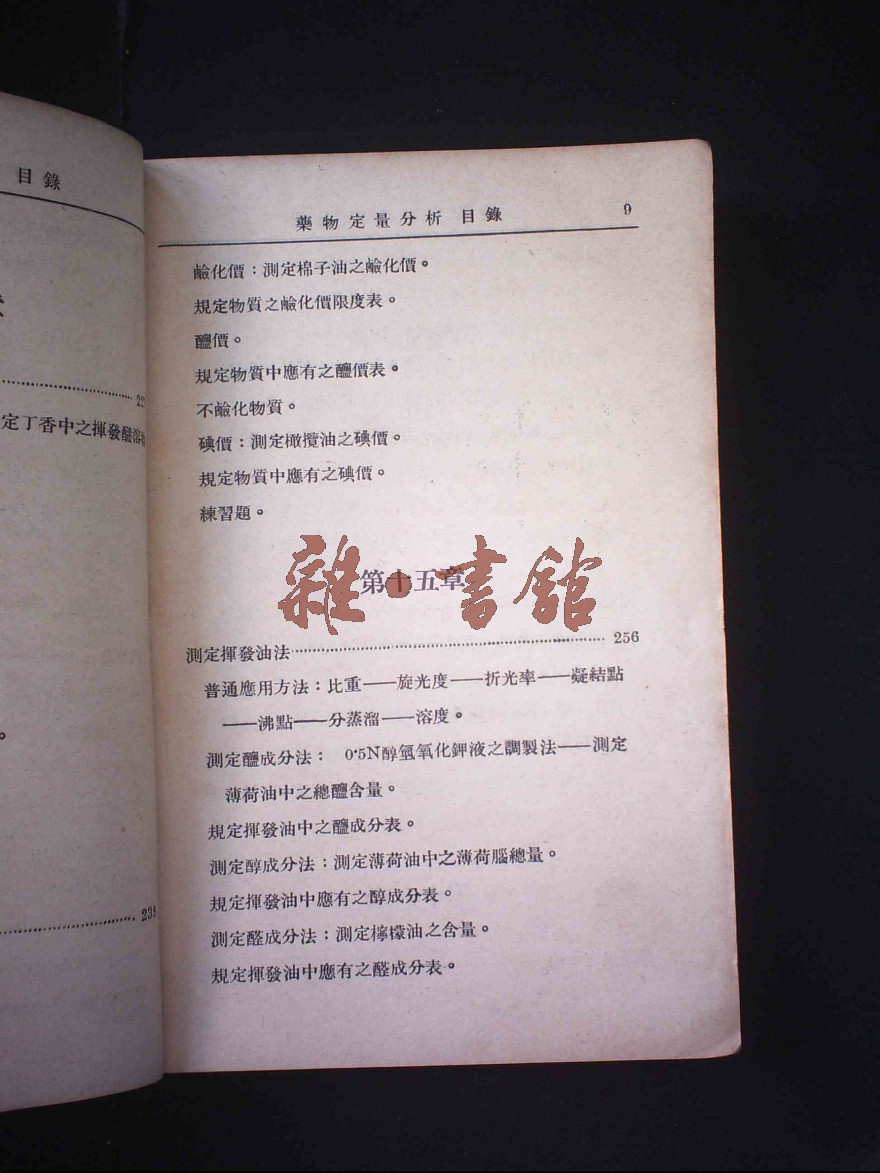 目錄
22
定丁香中之揮發醚溶
238
藥物定量分析 目錄 9
鹼化價：測定棉子油之鹼化價。
規定物質之鹼化價限度表。
醯價。
規定物質中應有之醯價表。
不鹼化物質。
碘價：測定橄欖油之碘價。
規定物質中應有之碘價。
練習題。
第十五章
雜·書館
測定揮發油法 256
普通應用方法：比重——旋光度——折光率——凝結點
——沸點——分蒸溜——溶度。
測定醯成分法： 0·5N醇氫氧化鉀液之調製法——測定
薄荷油中之總醯含量。
規定揮發油中之醯成分表。
測定醇成分法：測定薄荷油中之薄荷腦總量。
規定揮發油中應有之醇成分表。
測定醛成分法：測定檸檬油之含量。
規定揮發油中應有之醛成分表。